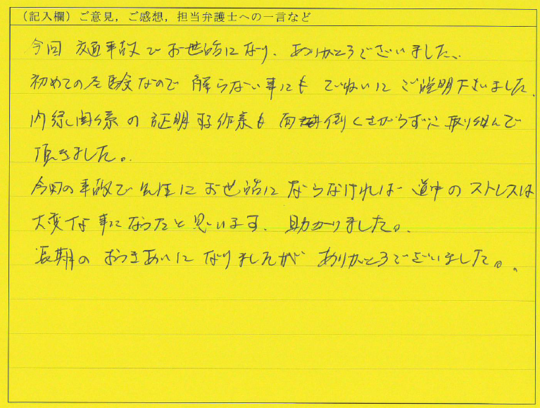 （記入欄）ご意見，ご感想，担当弁護士への一言など
今回 交通事故でお世話になり、ありがとうございました、
初めての体験なので 解らない事にも ていねいに ご説明下さいました。
内縁関係の 証明する作業も 面倒くさがらずに 取り組んで
頂きました。
今回の事故で 先生に お世話に ならなければ 道中の ストレスは
大変な事になったと思います、助かりました。
長期の おつきあいに なりましたが ありがとうございました。